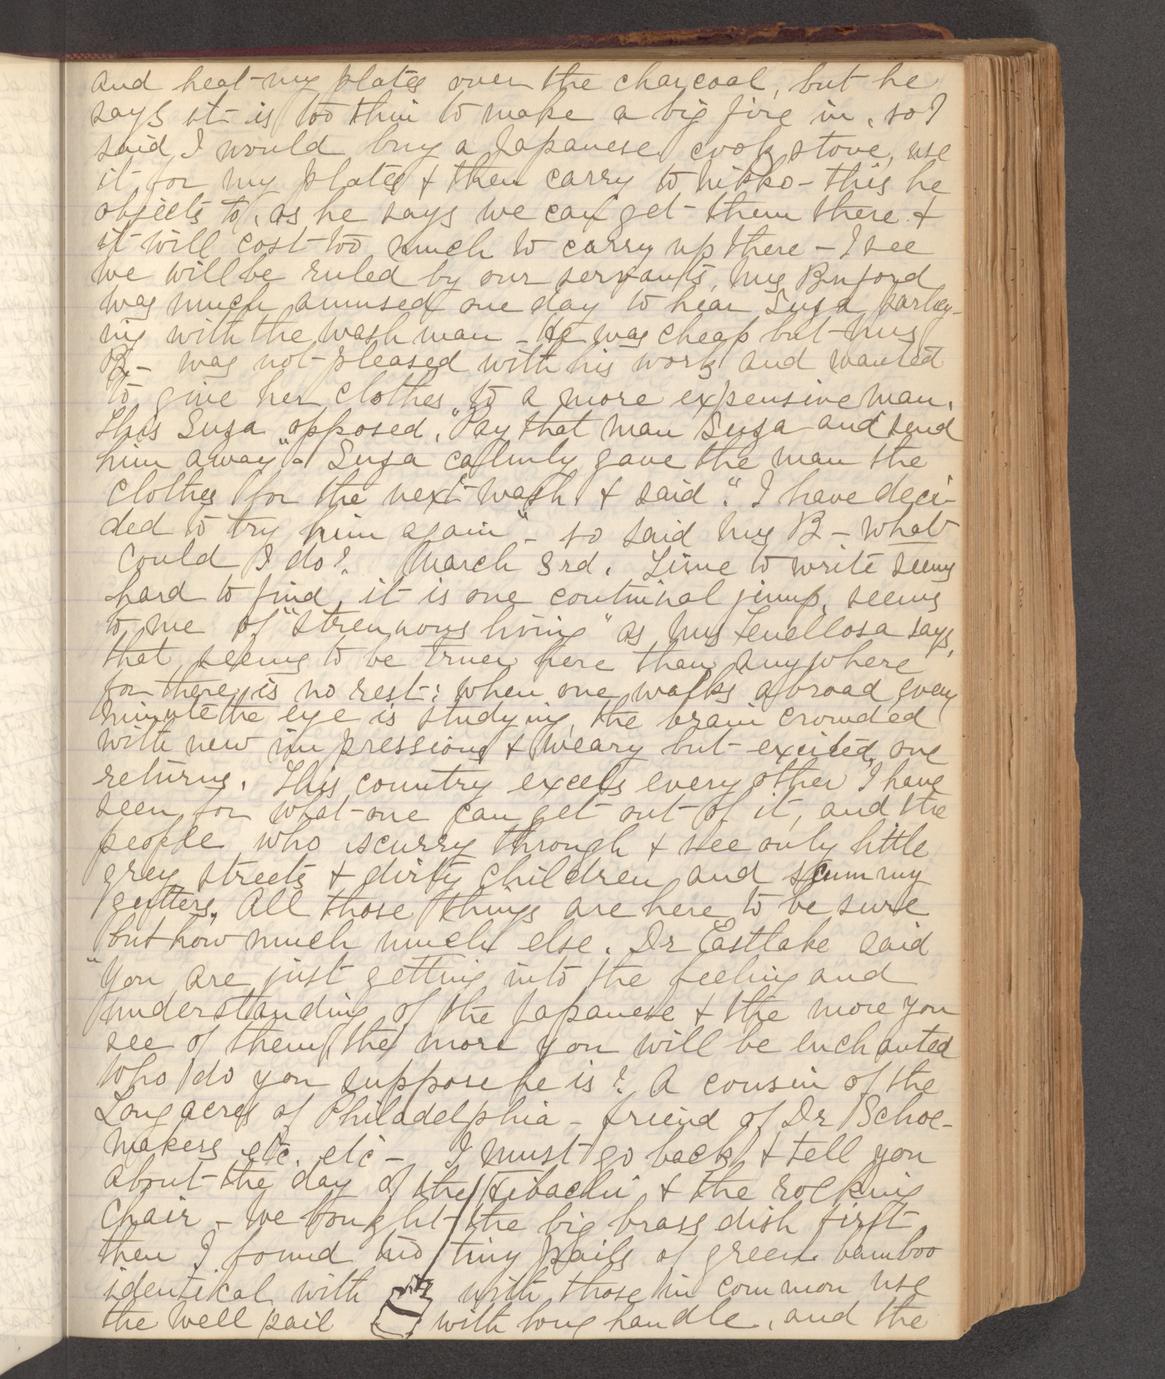 and heat my plates over the charcoal, but he
says it is too thin to make a big fire in, so I
said I would buy a Japanese cook stove, use
it for my plates & then carry to Nikko - this he
objects to, as he says we can get them there &
it will cost too much to carry up there - I see
we will be ruled by our servants, Mrs Buford
was much amused one day to hear Suza parley-
ing with the wash man - He was cheap but Mrs
B - was not pleased with his work and wanted
to give her clothes to a more expensive man.
This Suza opposed, "Pay that man Suza and send
him away". Suza calmly gave the man the
clothes for the next wash & said "I have deci-
ded to try him again" - so said Mrs B - what
could I do? March 3rd. Time to write seems
hard to find, it is one continual jump, seems
to me of "strenuous living" as Mrs Fenellosa says,
that seems to be truer here than anywhere
for there is no rest: when one walks abroad every
minute the eye is studying, the brain crowded
with new impressions & weary but excited, one
returns. This country excels every other I have
seen for what one can get out of it, and the
people who scurry through & see only little
grey streets & dirty children and scummy
gutters. All those things are here to be sure
but how much much else. Dr Eastlake said
"You are just getting into the feeling and
understanding of the Japanese & the more you
see of them, the more you will be enchanted
Who do you suppose he is? A cousin of the
Longacres of Philadelphia - friend of Dr Schoe-
makers etc. etc - I must go back & tell you
about the day of the Hibachi & the rocking
chair - we bought the big brass dish first,
then I found two tiny pails of green bamboo
identical with with those in common use
the well pail with long handle, and the